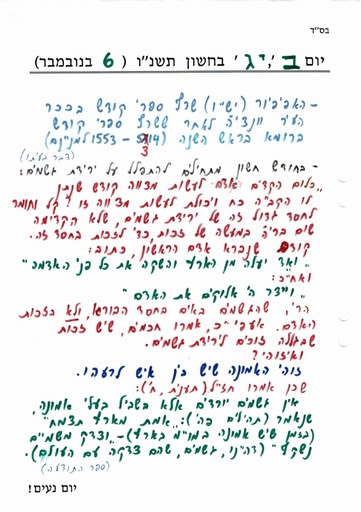 בס"ד
יום ב', י"ג' בחשון תשנ"ו ( 6 בנובמבר)
- האפיפיור (יש"ו) שרף ספרי קודש בככר
העיר וונציה לאחר ששרף ספרי קודש
ברומא בראש השנה (1553 - למנינם)
(דבר בעיתו)
- בחודש חשון מתחילים להתפלל על ירידת גשמים:
"כלום הקדים אדם לעשות מצווה קודש שנתן
לו הקב"ה כח ויכולת לעשות מצווה זו? קל וחומר
לחסד גדול זה של ירידת גשמים, שלא הקדימה
שום בריה במעשה של זכות כדי לזכות בחסד זה.
קודם שנברא אדם הראשון, כתוב:
"ואד יעלה מן הארץ והשקה את כל פני האדמה"
ואח"כ:
"וייצר ה' אלוקים את האדם"
הרי, שהגשמים באים בחסד הבורא, ולא בזכות
האדם. אעפ"י כ, אמרו חכמים, שיש זכות
שבגללה זוכים לירידת גשמים.
ואיזוהי?
זוהי האמונה שיש בין איש לרעהו.
שכן אמרו חז"ל (תענית, ח'):
אין גשמים יורדים אלא בשביל בעלי אמונה,
שנאמר (תהילים פה'): "אמת מארץ תצמח"
(בזמן שיש אמונה במו"מ בארץ) - "וצדק משמיים
נשקף" (דהיינו, גשמים, שהם צדקה עם העולם).
(ספר התודעה)
יום נעים!